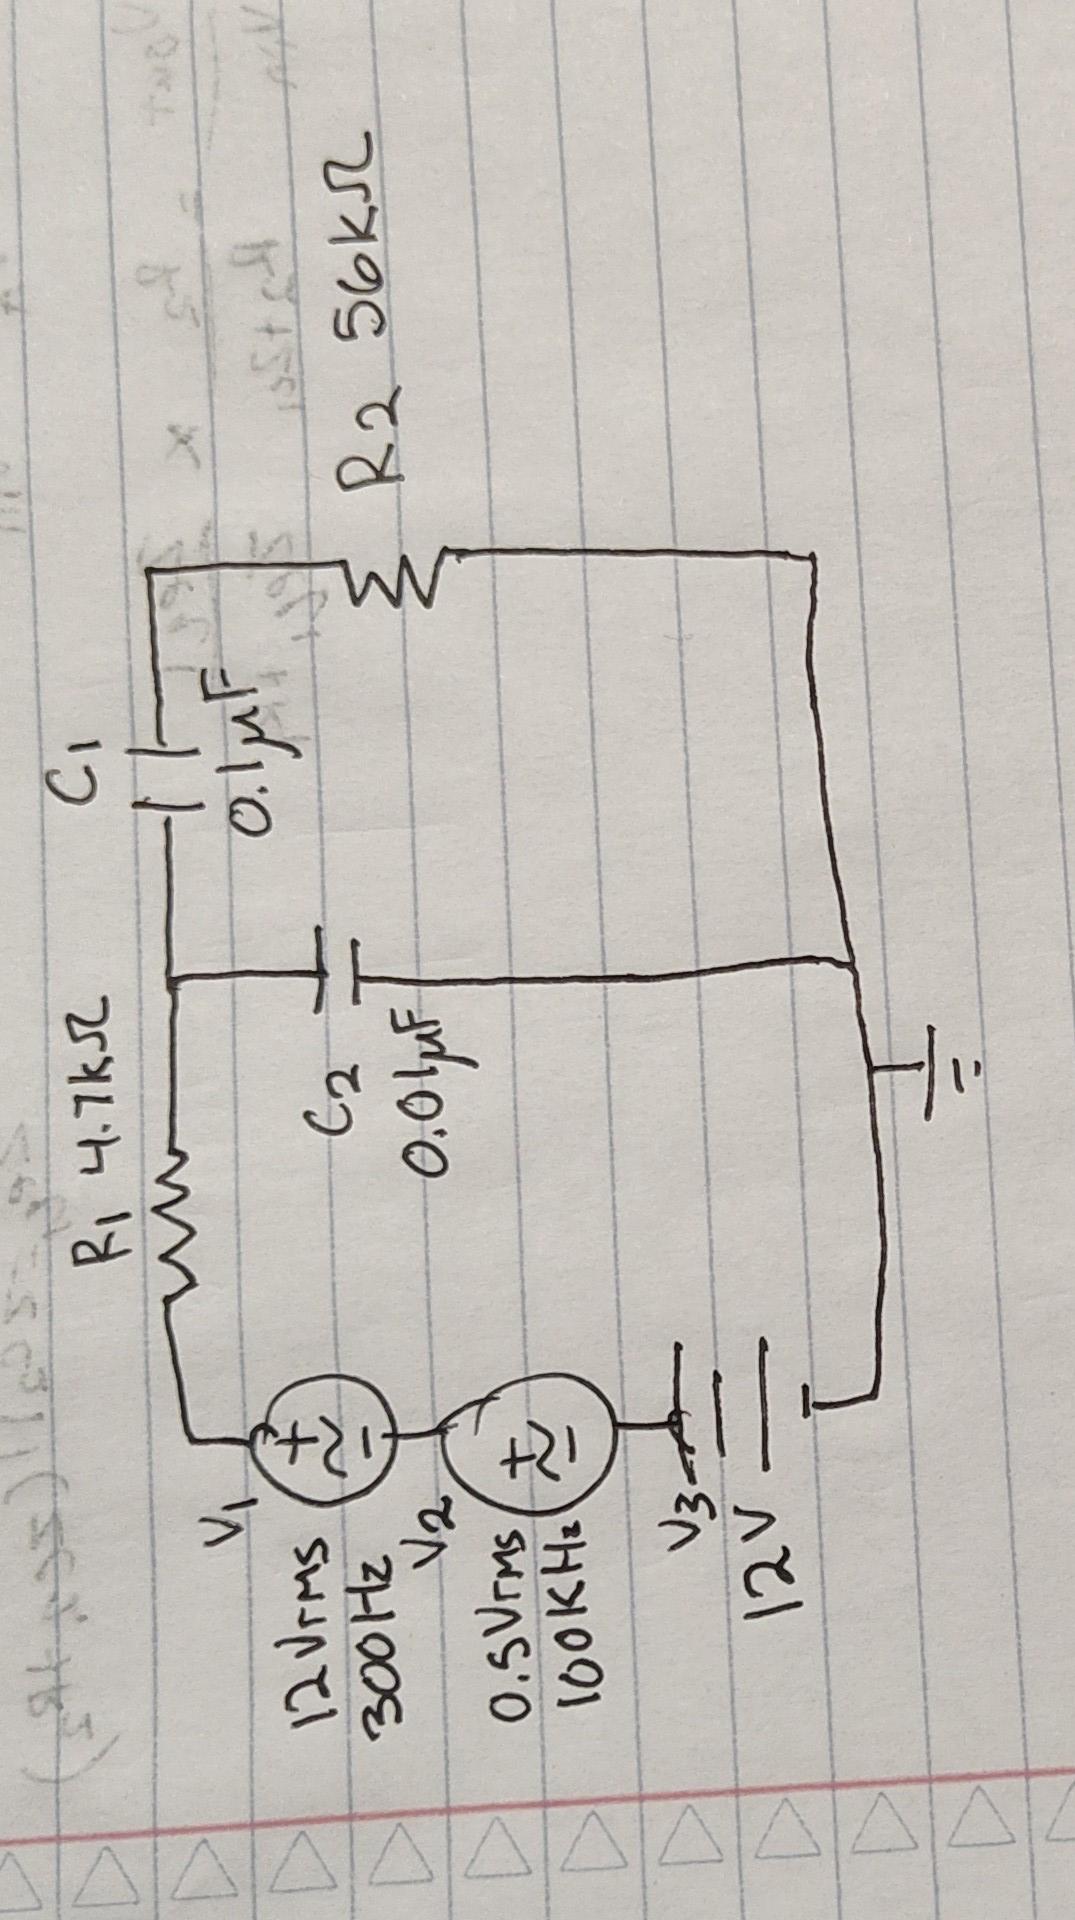 R1 4.7kΩ
C1
0.1μF
R2 56kΩ
C2
0.01μF
V1
+
~
-
12Vrms
300Hz
V2
+
~
-
0.5Vrms
100KHz
V3
12V